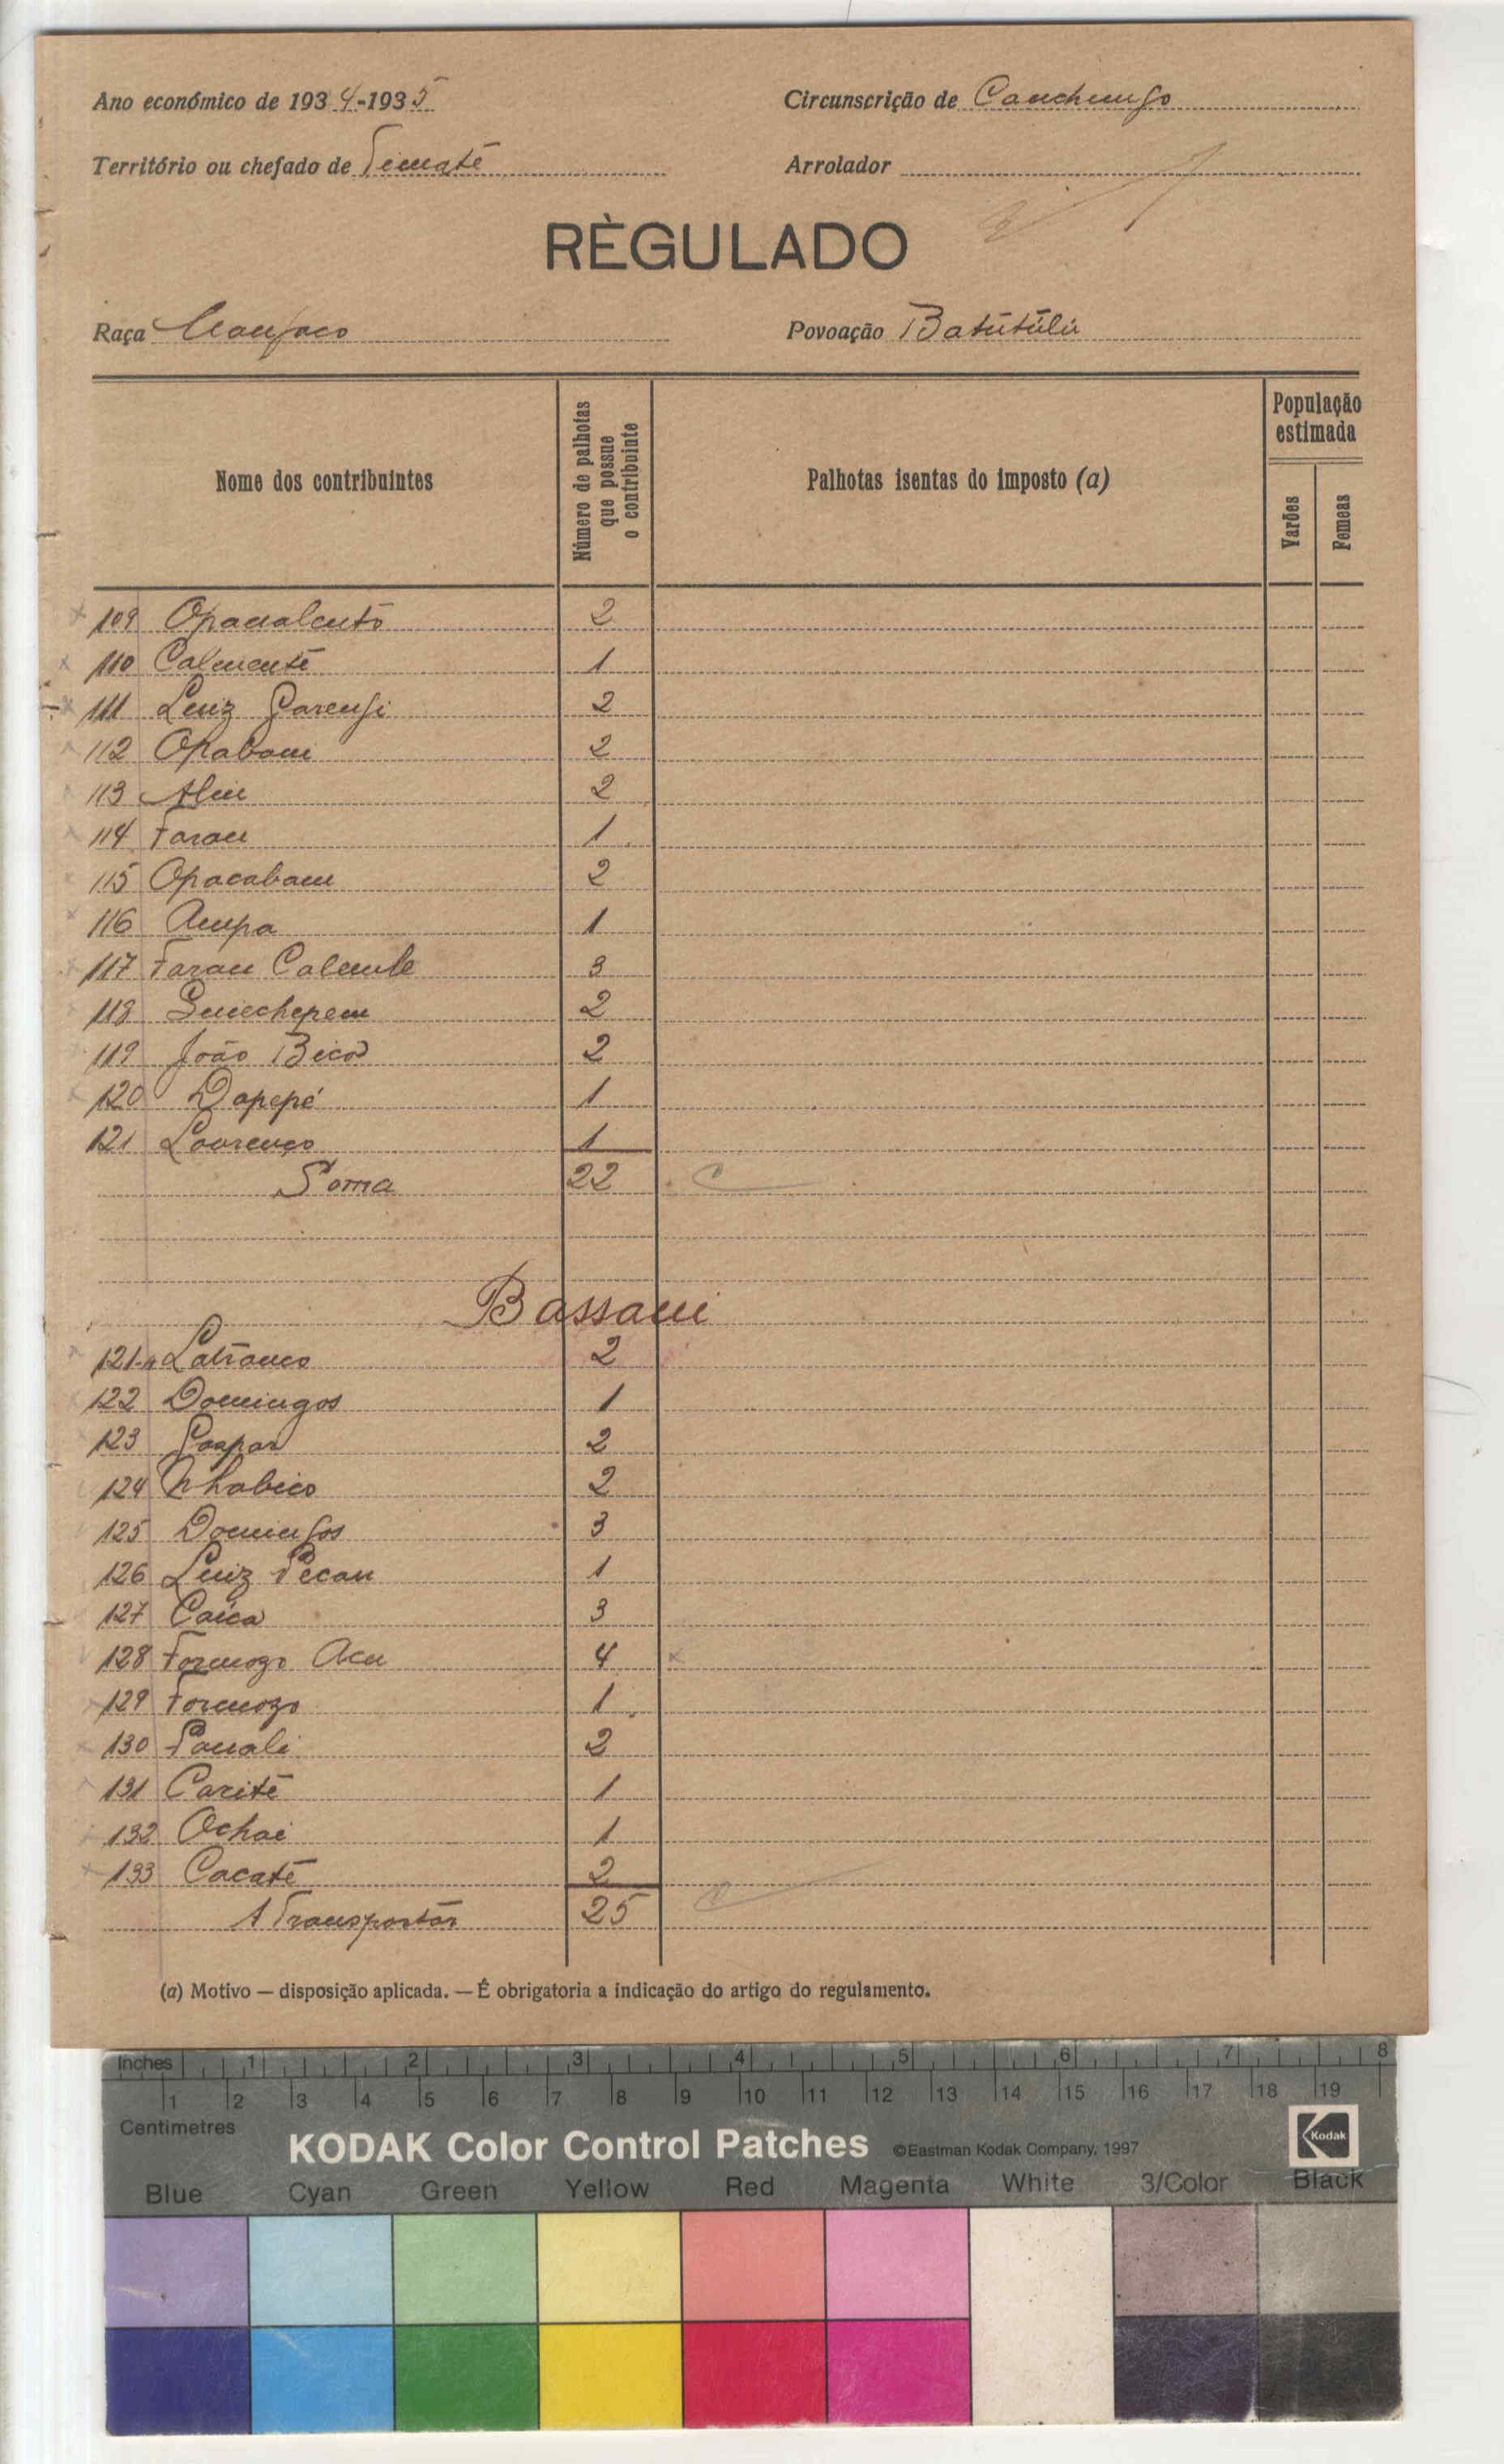 Ano económico de 1934-1935
Circunscrição de Canchungo
Território ou chefado de Timaté
Arrolador
RÈGULADO
Raça Manjaco
Povoação Batutúlú
Nome dos contribuintes
Número de palhotas que possue o contribuinte
Palhotas isentas do imposto (a)
População estimada
Varões
Femeas
109 2
110 Calmenté 1
111 Luiz 2
112 Opabam 2
113 2
114 Faram 1
115 Opacabam 2
116 Ampa 1
117 Faram 3
118 2
119 João Bico 2
120 Dapepé 1
121 Lourenço 1
Soma 22
Bassam
121-A 2
122 Domingos 1
123 Gaspar 2
124 Nhabico 2
125 Domingos 3
126 Luiz Pecam 1
127 Caica 3
128 Formozo 4
129 Formozo 1
130 2
131 Carité 1
132 Ochai 1
133 Cacaté 2
A Transportar 25
(a) Motivo — disposição aplicada. — É obrigatoria a indicação do artigo do regulamento.
Inches 1 2 3 4 5 6 7 8
1 2 3 4 5 6 7 8 9 10 11 12 13 14 15 16 17 18 19
Centimetres
KODAK Color Control Patches ©Eastman Kodak Company, 1997 Kodak
Blue Cyan Green Yellow Red Magenta White 3/Color Black